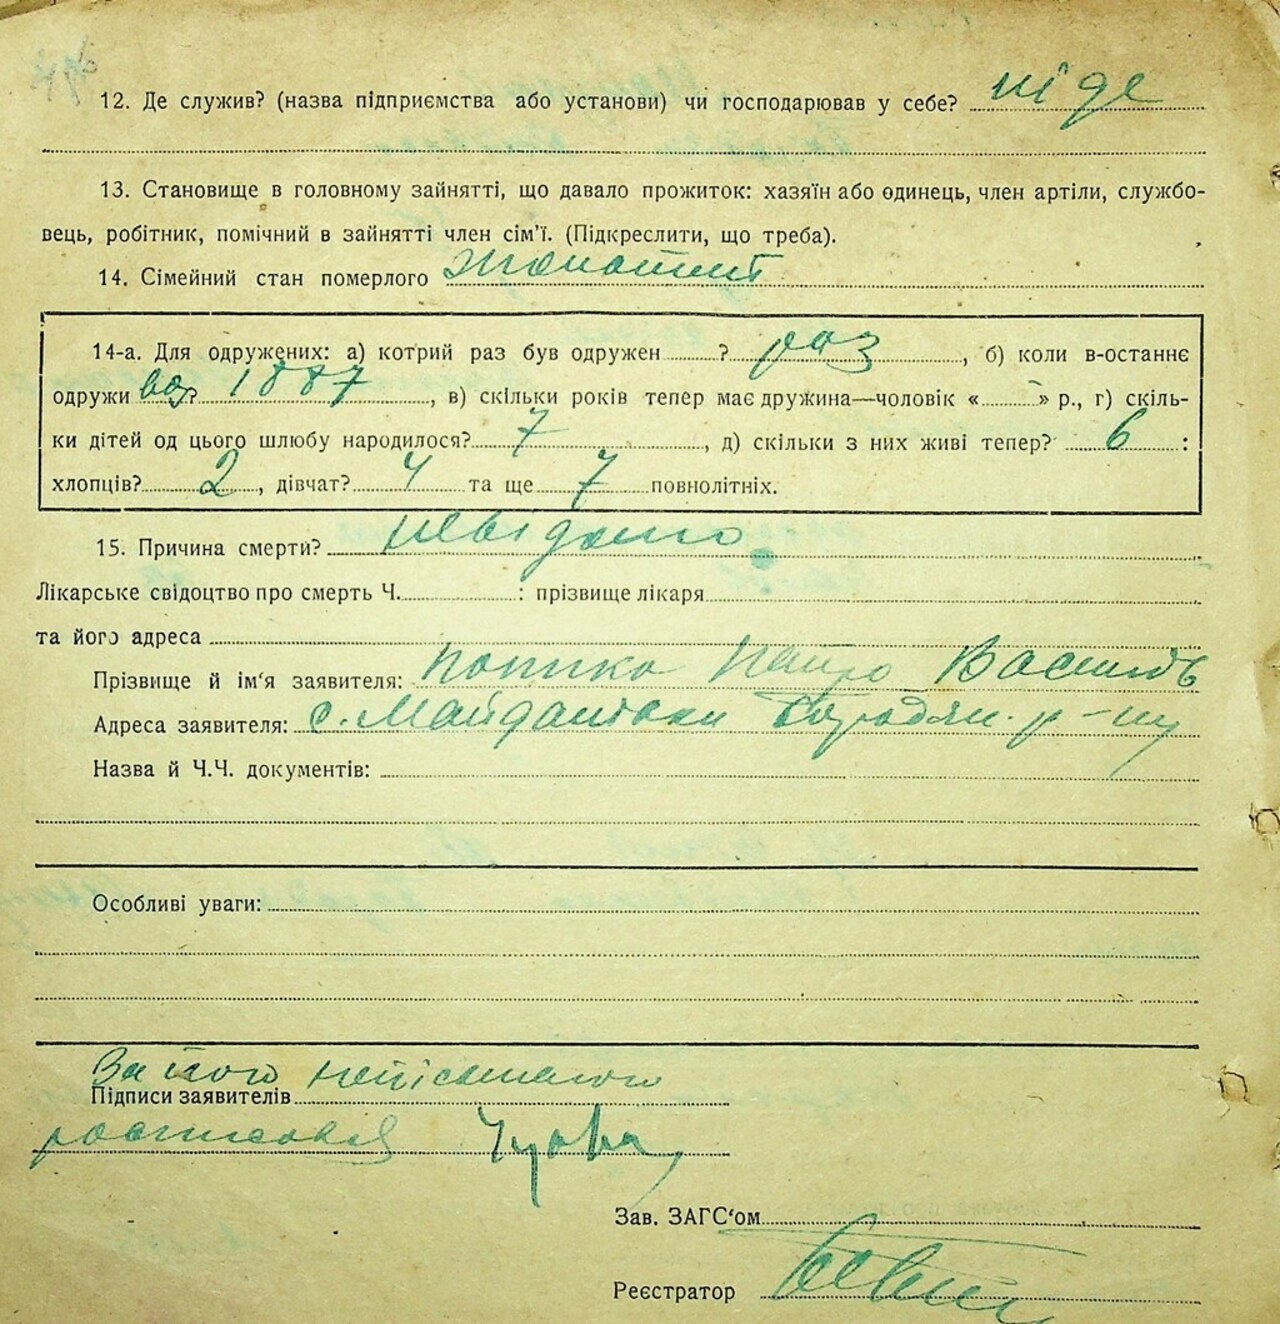 12. Де служив? (назва підприємства або установи) чи господарював у себе? ніде
13. Становище в головному зайнятті, що давало прожиток: хазяїн або одинець, член артіли, службо-
вець, робітник, помічний в зайнятті член сім'ї. (Підкреслити, що треба).
14. Сімейний стан померлого жонатий
14-а. Для одружених: а) котрий раз був одружен ? раз, б) коли в-останнє
одружи вся? 1887, в) скільки років тепер має дружина—чоловік « — » р., г) скіль-
ки дітей од цього шлюбу народилося? 7, д) скільки з них живі тепер? 6 :
хлопців? 2, дівчат? 4 та ще 7 повнолітніх.
15. Причина смерти? невідомо
Лікарське свідоцтво про смерть Ч. : прізвище лікаря
та його адреса
Прізвище й ім'я заявителя: Петро Василь
Адреса заявителя: с. Майданівки Бородян. р-ну
Назва й Ч.Ч. документів:
Особливі уваги:
За його неписьменого
Підписи заявителів
росписався
Зав. ЗАГС'ом
Реєстратор